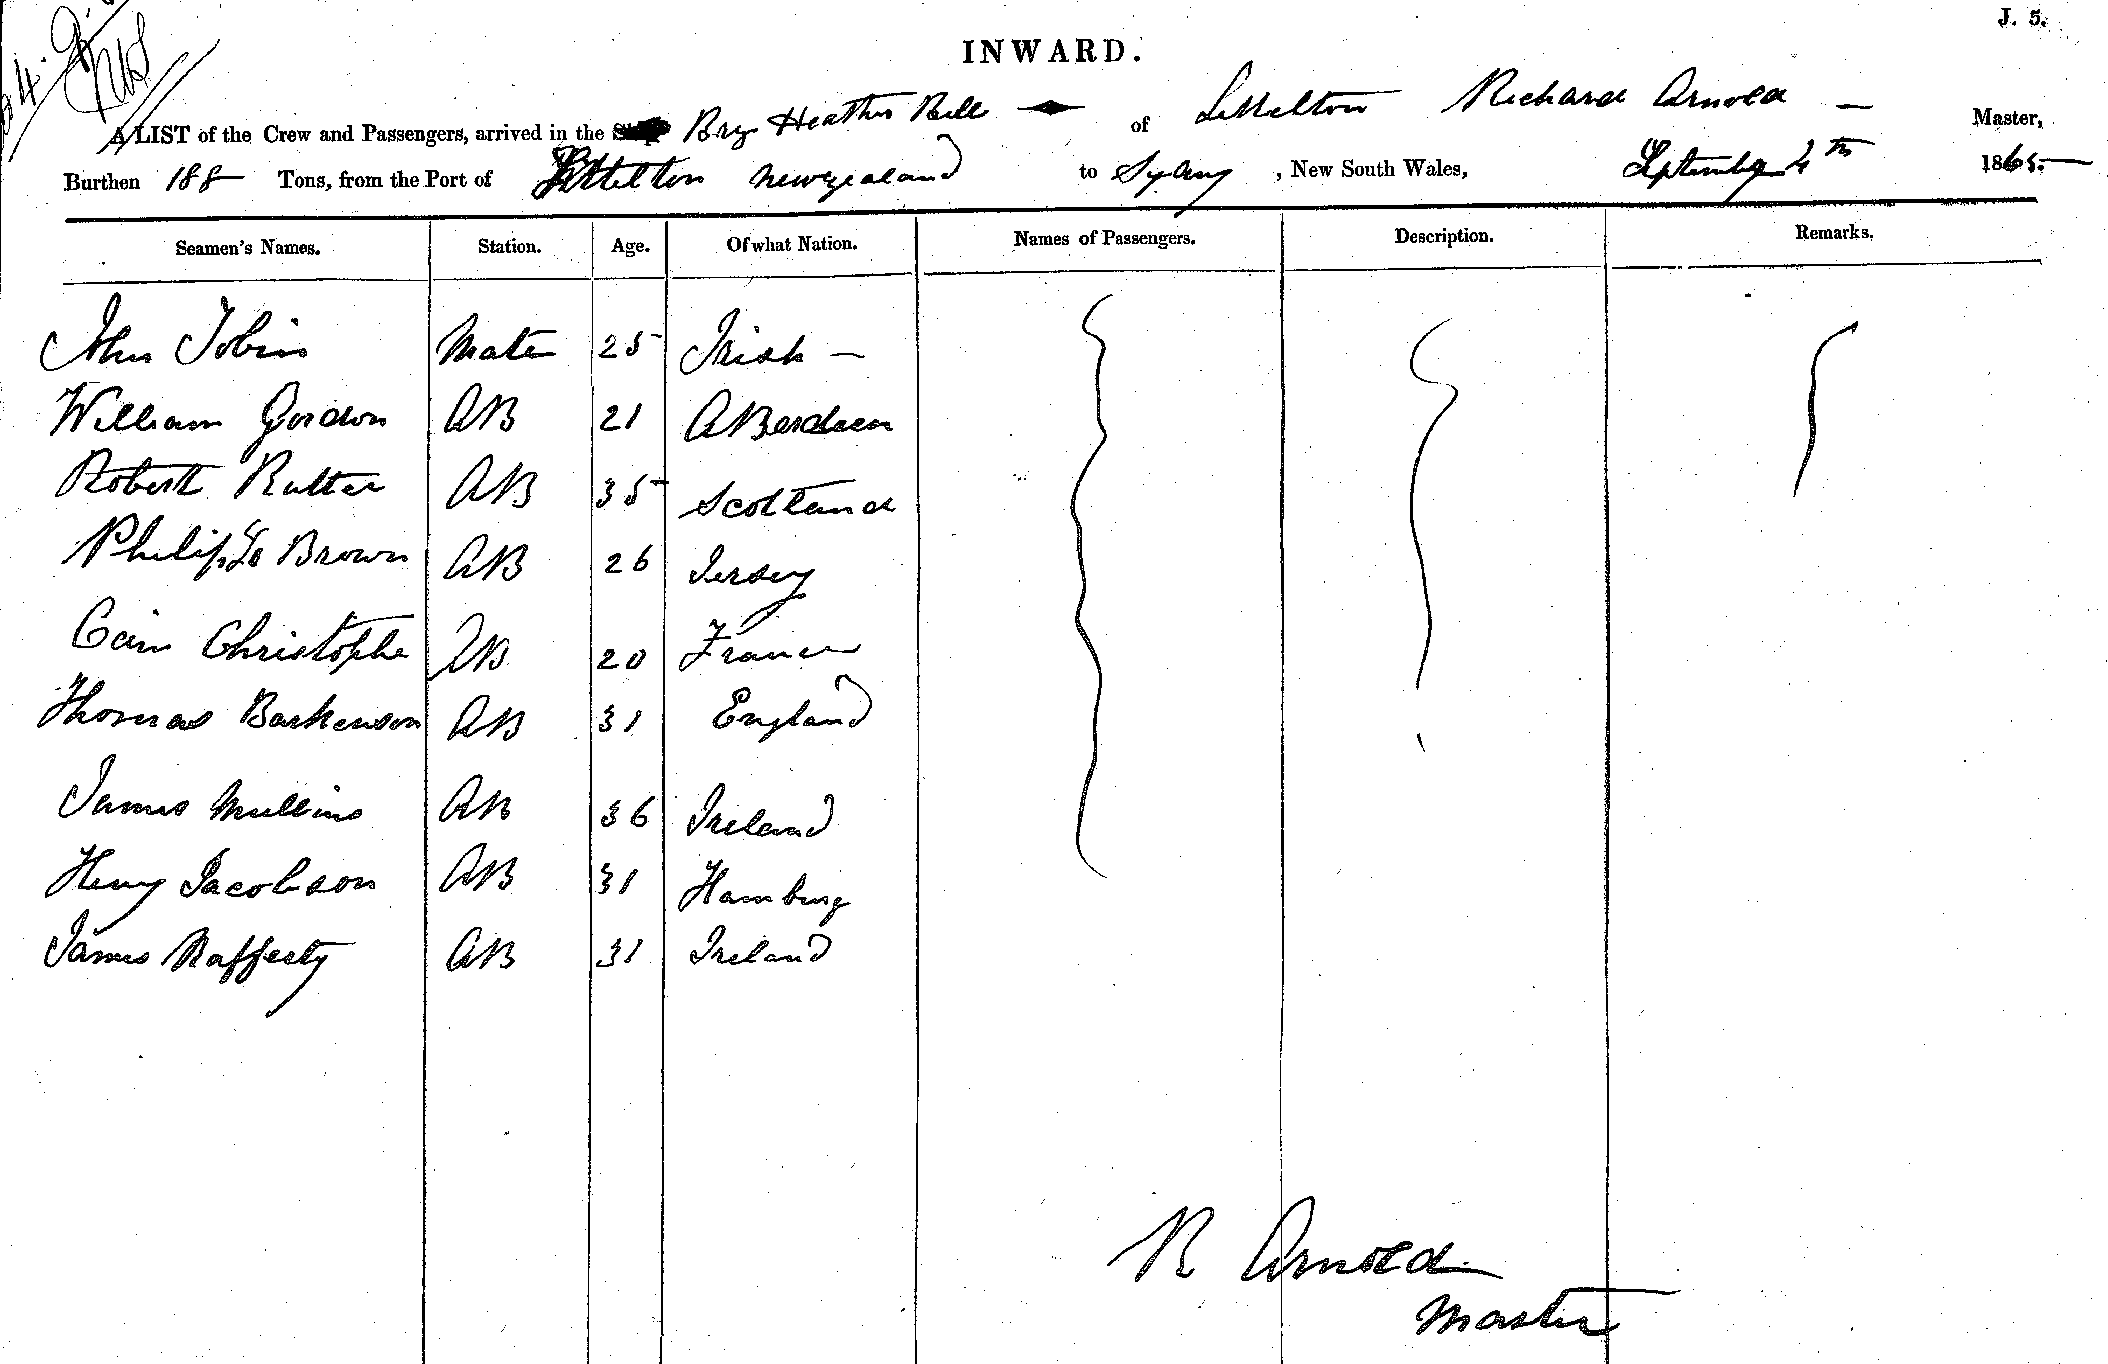 J. 5.
INWARD.
A LIST of the Crew and Passengers, arrived in the Brig Heather Bell of Littelton Richard Arnold Master,
Burthen 188 Tons, from the Port of Littelton New zealand to Sydny, New South Wales, September 4th 1865.
Seamen's Names. Station. Age. Of what Nation. Names of Passengers. Description. Remarks.
John Tobin Mate 25 Irish
William Gordon AB 21 ABerdeen
Robert Rutter AB 35 Scotland
Philip Le Brown AB 26 Jersey
Cain Christophe AB 20 France
Thomas Barkenson AB 31 England
James Mullins AB 36 Ireland
Henry Jacobson AB 31 Hamburg
James Rafferty AB 31 Ireland
R Arnold
Master